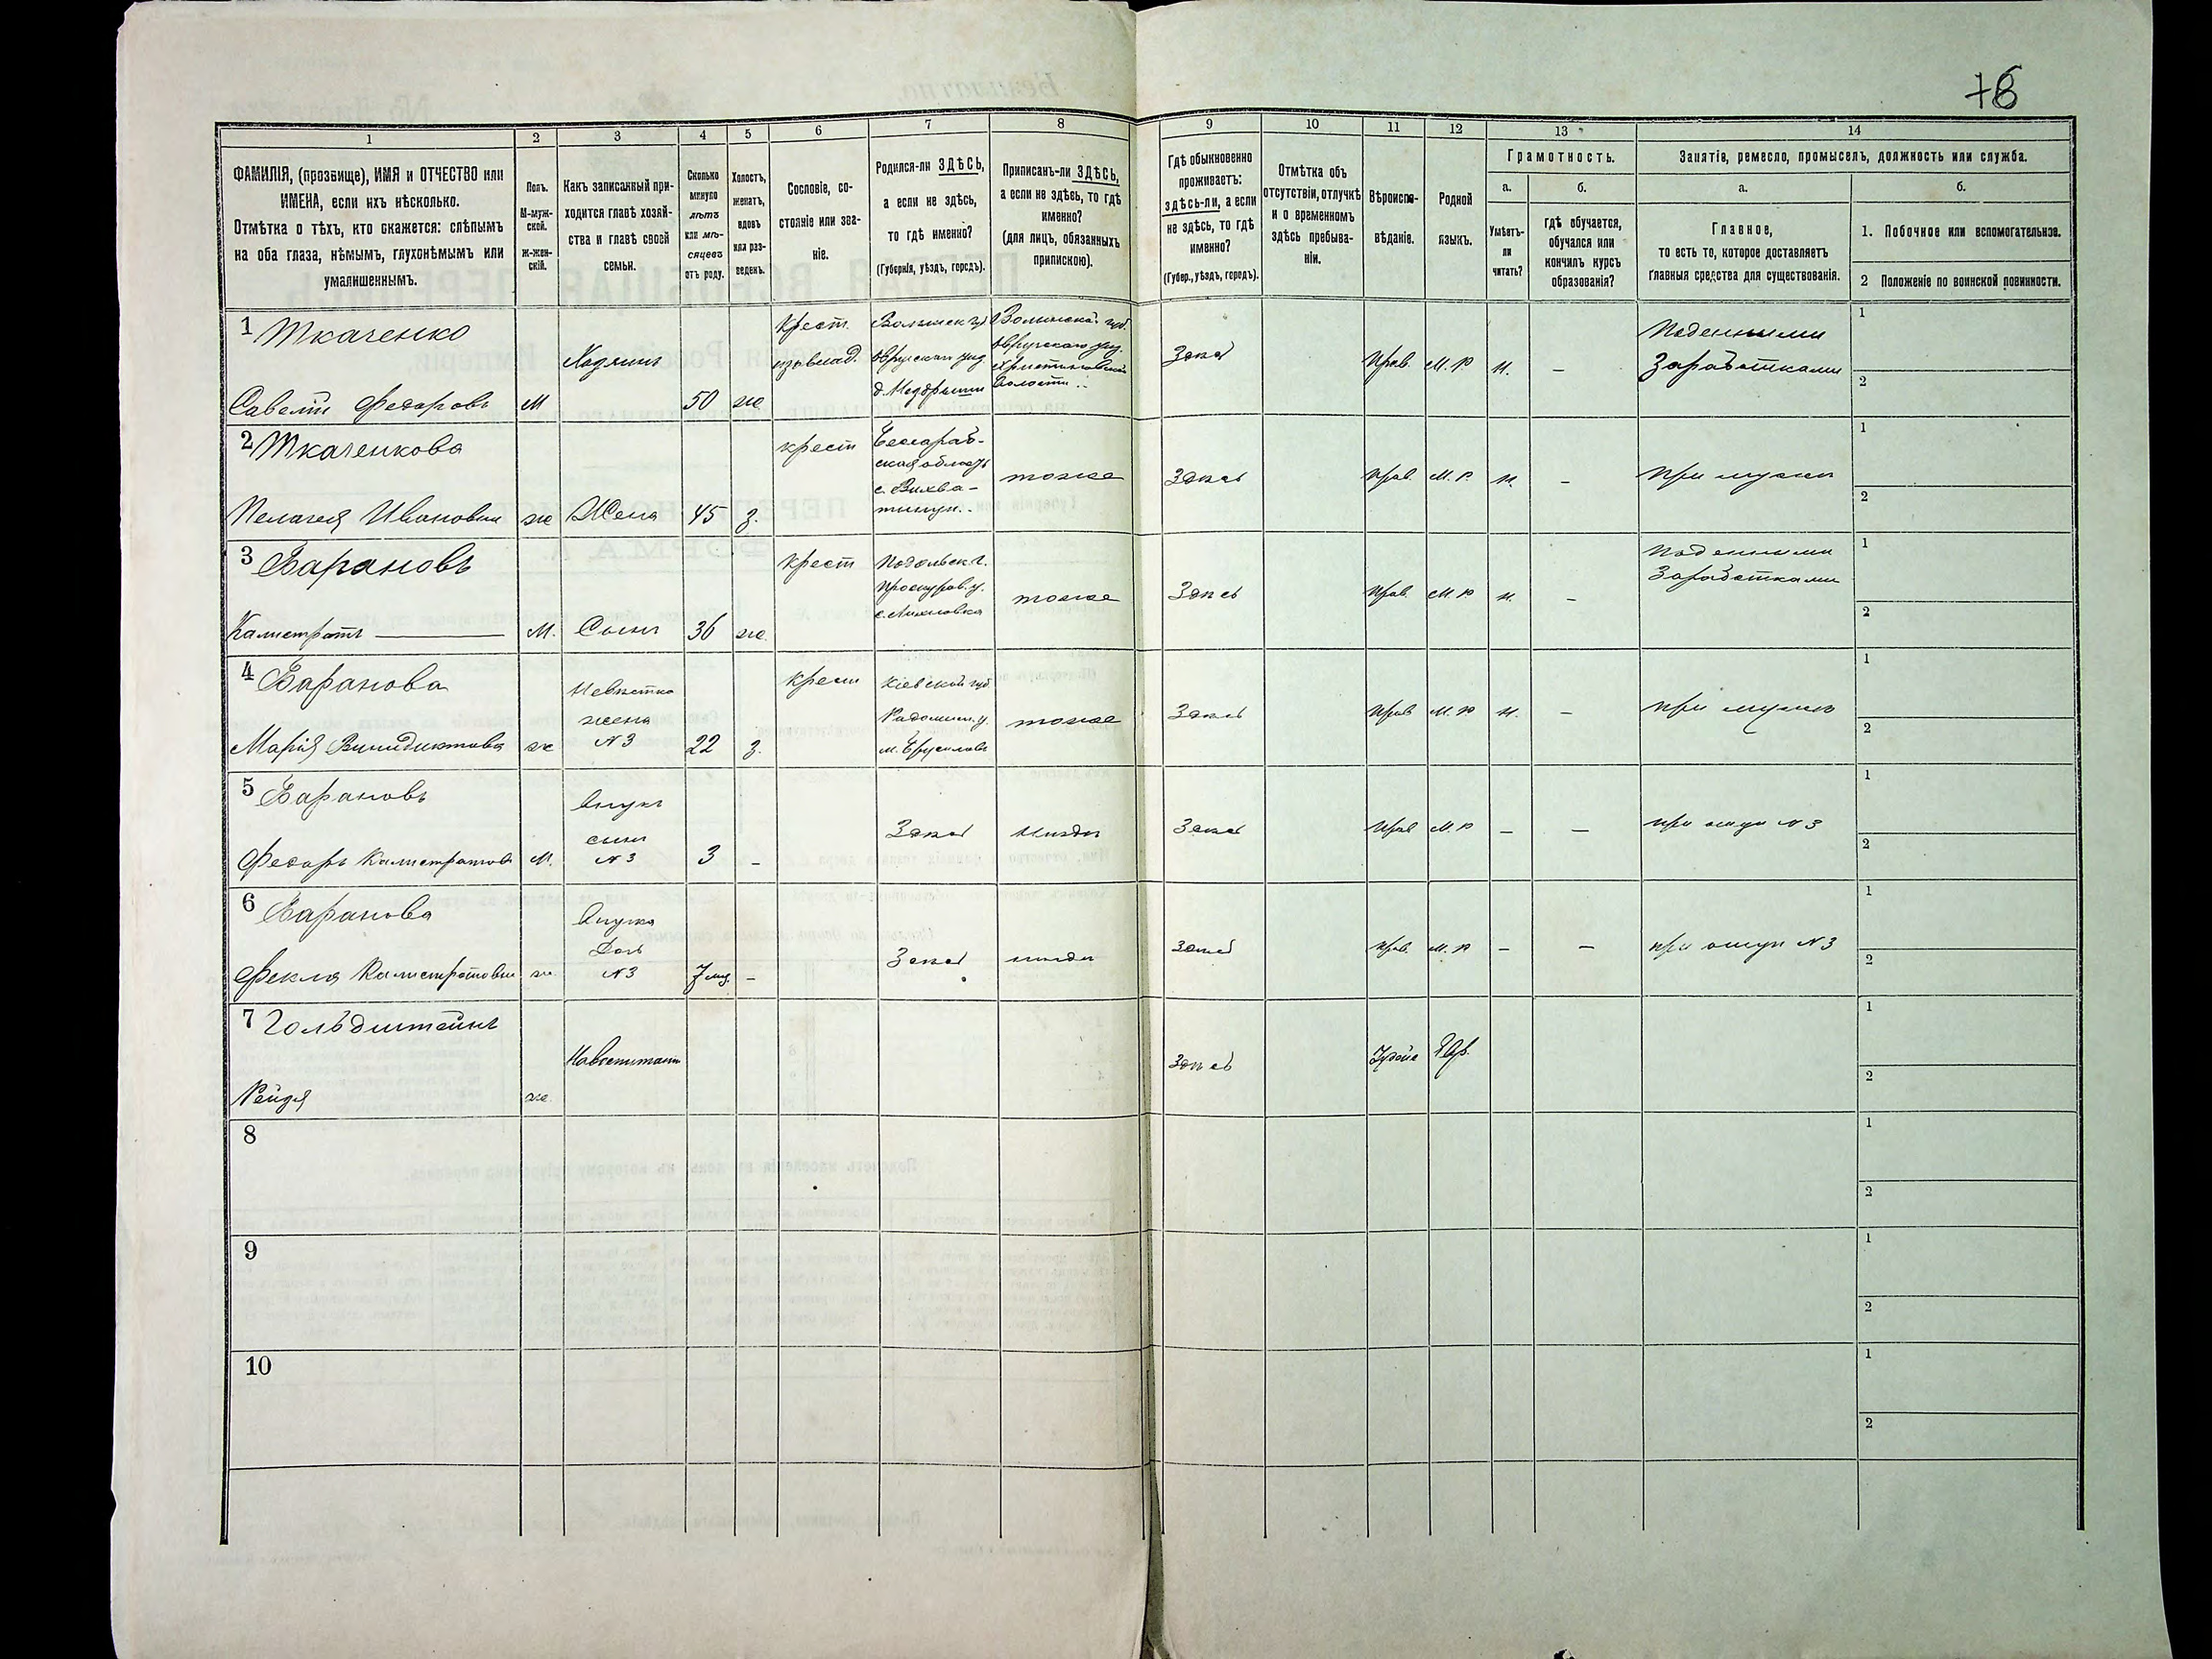 78
1
2
3
4
5
6
7
8
9
10
11
12
13
14
ФАМИЛІЯ, (прозвище), ИМЯ и ОТЧЕСТВО или
ИМЕНА, если ихъ нѣсколько.
Отмѣтка о тѣхъ, кто скажется: слѣпымъ
на оба глаза, нѣмымъ, глухонѣмымъ или
умалишеннымъ.
Полъ.
М-муж-
ской.
Ж-жен-
скій.
Какъ записанный при-
ходится главѣ хозяй-
ства и главѣ своей
семьи.
Сколько
минуло
лѣтъ
или мѣ-
сяцевъ
отъ роду.
Холостъ,
женатъ,
вдовъ
или раз-
веденъ.
Сословіе, со-
стояніе или зва-
ніе.
Родился-ли ЗДѢСЬ,
а если не здѣсь,
то гдѣ именно?
(Губернія, уѣздъ, городъ).
Приписанъ-ли ЗДѢСЬ,
а если не здѣсь, то гдѣ
именно?
(для лицъ, обязанныхъ
припискою).
Гдѣ обыкновенно
проживаетъ:
здѣсь-ли, а если
не здѣсь, то гдѣ
именно?
(Губер., уѣздъ, городъ).
Отмѣтка объ
отсутствіи, отлучкѣ
и о временномъ
здѣсь пребыва-
ніи.
Вѣроиспо-
вѣданіе.
Родной
языкъ.
Грамотность.
а.
Умѣетъ-
ли
читать?
б.
Гдѣ обучается,
обучался или
кончилъ курсъ
образованія?
Занятіе, ремесло, промыселъ, должность или служба.
а.
Главное,
то есть то, которое доставляетъ
главныя средства для существованія.
б.
1. Побочное или вспомогательное.
2 Положеніе по воинской повинности.
1 Ткаченко
Савелій Федоровъ
М
Хозяинъ
50
ж
Крест.
из влад.
Волынск. г.
Овручскаго уѣзд
Волынской губ.
Овручскаго уѣзд.
Волости
Здѣсь
Прав.
М. Р
Н.
–
Поденными
Заработками
1
2
2 Ткаченкова
Пелагея Ивановна
ж
Жена
45
З.
крест
Бессараб-
ская область
тоже
Здѣсь
Прав.
М. Р.
Н.
–
при мужѣ
1
2
3 Барановъ
Калистратъ
М.
Сынъ
36
ж.
крест
Подольск. г.
Проскуров. у.
тоже
Здѣсь
Прав.
М. Р
Н.
–
Поденными
Заработками
1
2
4 Баранова
Марія Винидиктова
ж
Невѣстка
жена
N 3
22
З.
крест
Кіевской губ
Радомысл. у.
м. Брусиловъ
тоже
Здѣсь
Прав
М. Р
Н.
–
при мужѣ
1
2
5 Барановъ
Федоръ Калистратовъ
М.
Внукъ
сынъ
N 3
3
–
Здѣсь
Здѣсь
Прав
М. Р
–
–
при отцѣ N 3
1
2
6 Баранова
Фекла Калистратовна
ж
Внучка
Доч
N 3
7 мѣс.
–
Здѣсь
Здѣсь
Прав.
М. Р
–
–
при отцѣ N 3
1
2
7 Гольдштейнъ
Рейзя
ж
Здѣсь
Іудейс
Евр.
1
2
8
1
2
9
1
2
10
1
2